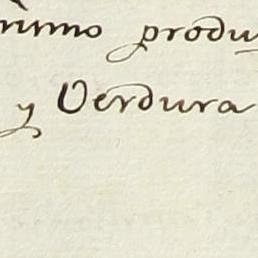 produ
y Verdura